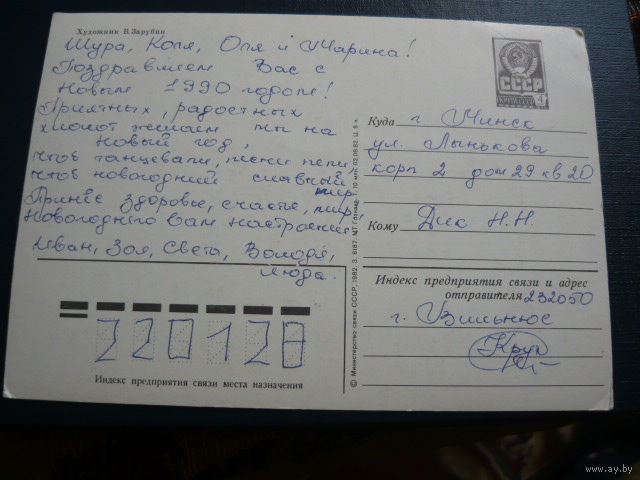 Художник В. Зарубин
Шура, Коля, Оля и Марина!
Поздравляем Вас с
Новым 1990 годом!
Приятных, радостных
хлопот желаем мы на
новый год,
чтоб танцевали, песни пели,
чтоб новогодний славный пир
Принёс здоровье, счастье, мир,
Новогоднего вам настроения
Иван, Зоя, Света, Володя,
Люда.
СССР
Куда г. Минск
ул. Лынькова
корп 2 дом 29 кв 20
Кому Дик Н.Н.
Индекс предприятия связи и адрес
отправителя 232050
г. Вильнюс
Крук
220128
Индекс предприятия связи места назначения
© Министерство связи СССР, 1982. З. 6187. МТ Гознака.
www.ay.by